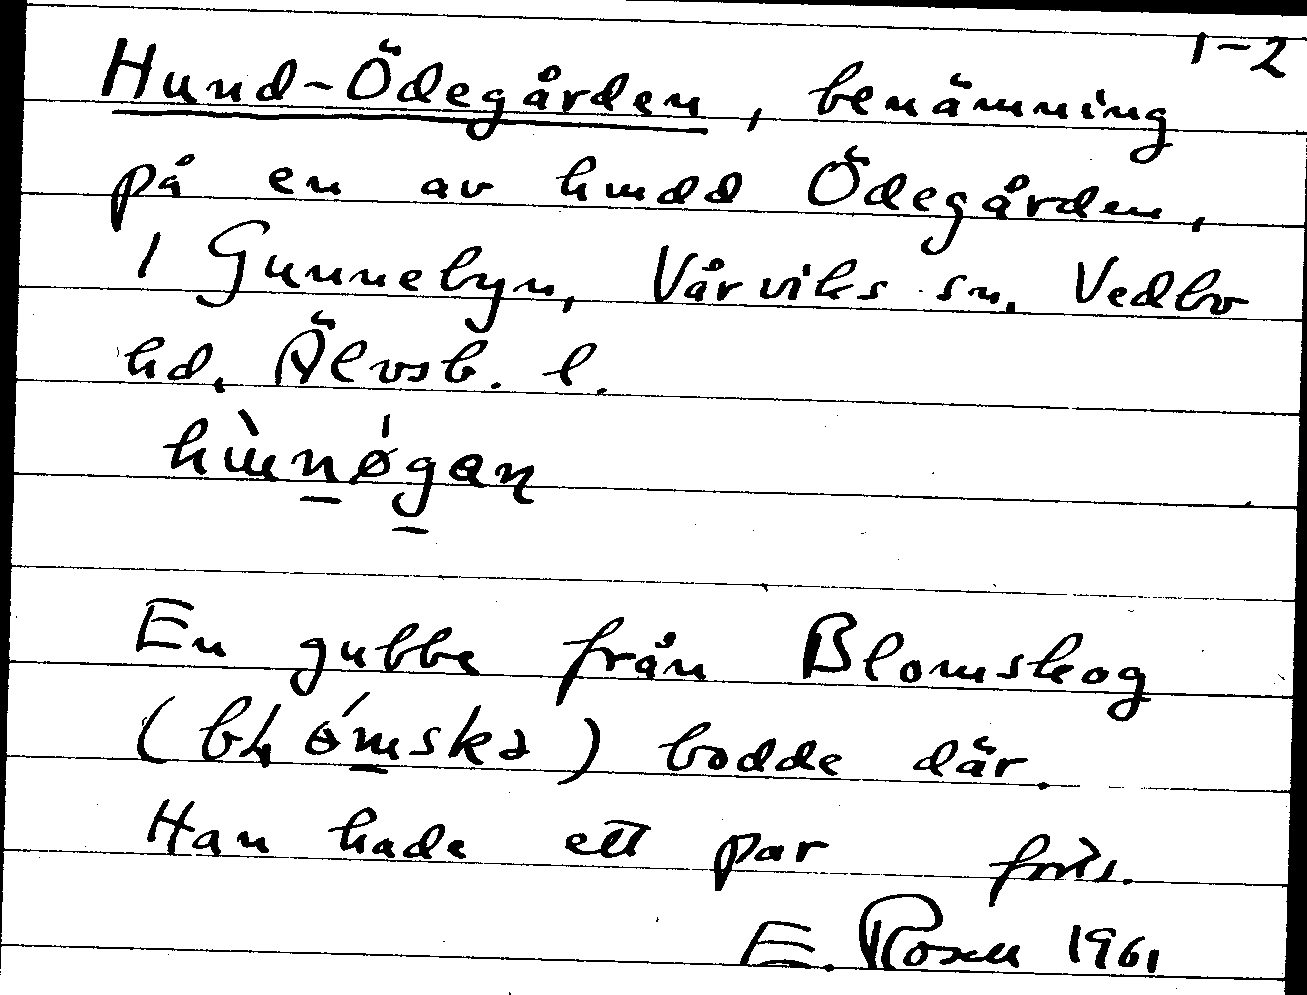 1-2
Hund-Ödegården, benämning
på en av hmdd Ödegården,
1 Gunnebyn, Vårviks sn, Vedbo
hd, Älvsb. l.
En gubbe från Blomskog
( ) bodde där.
Han hade ett par forts.
E. Rosell 1961